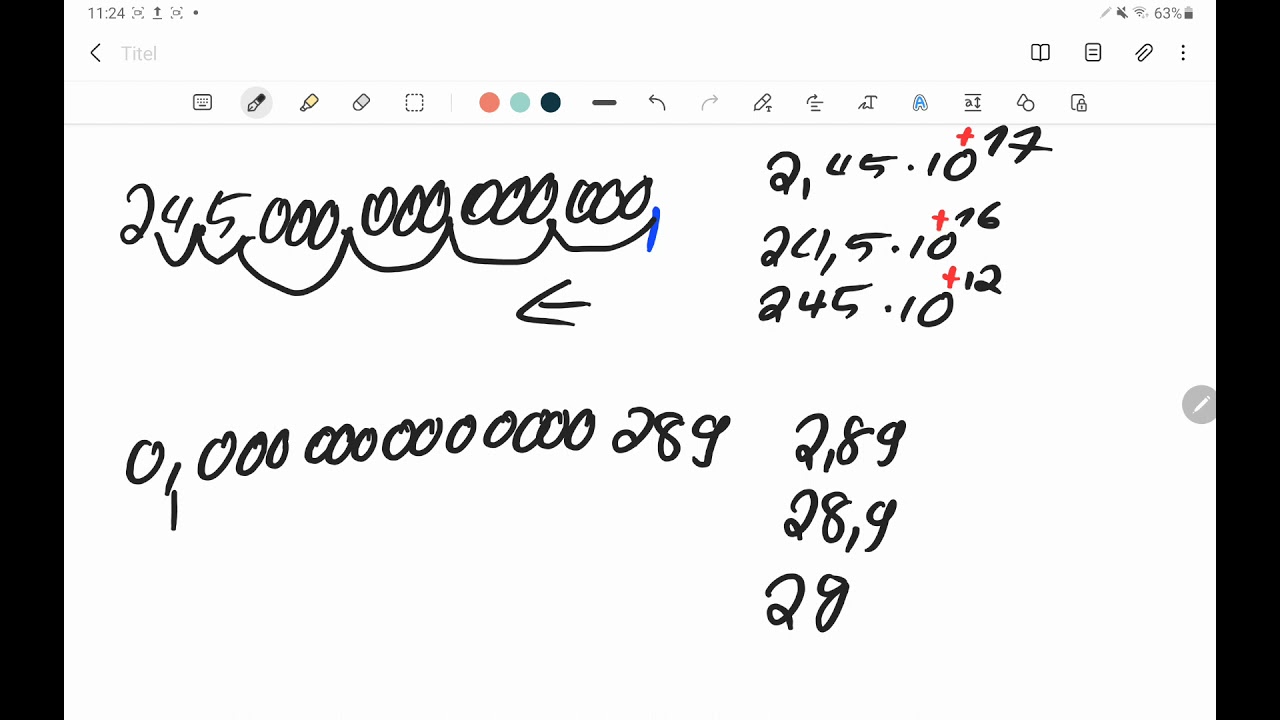 11:24 63%
Titel
245 000 000 000 000,
2,45 · 10^+17
24,5 · 10^+16
245 · 10^+12
0,000 000 000 0000 289
2,89
28,9
28